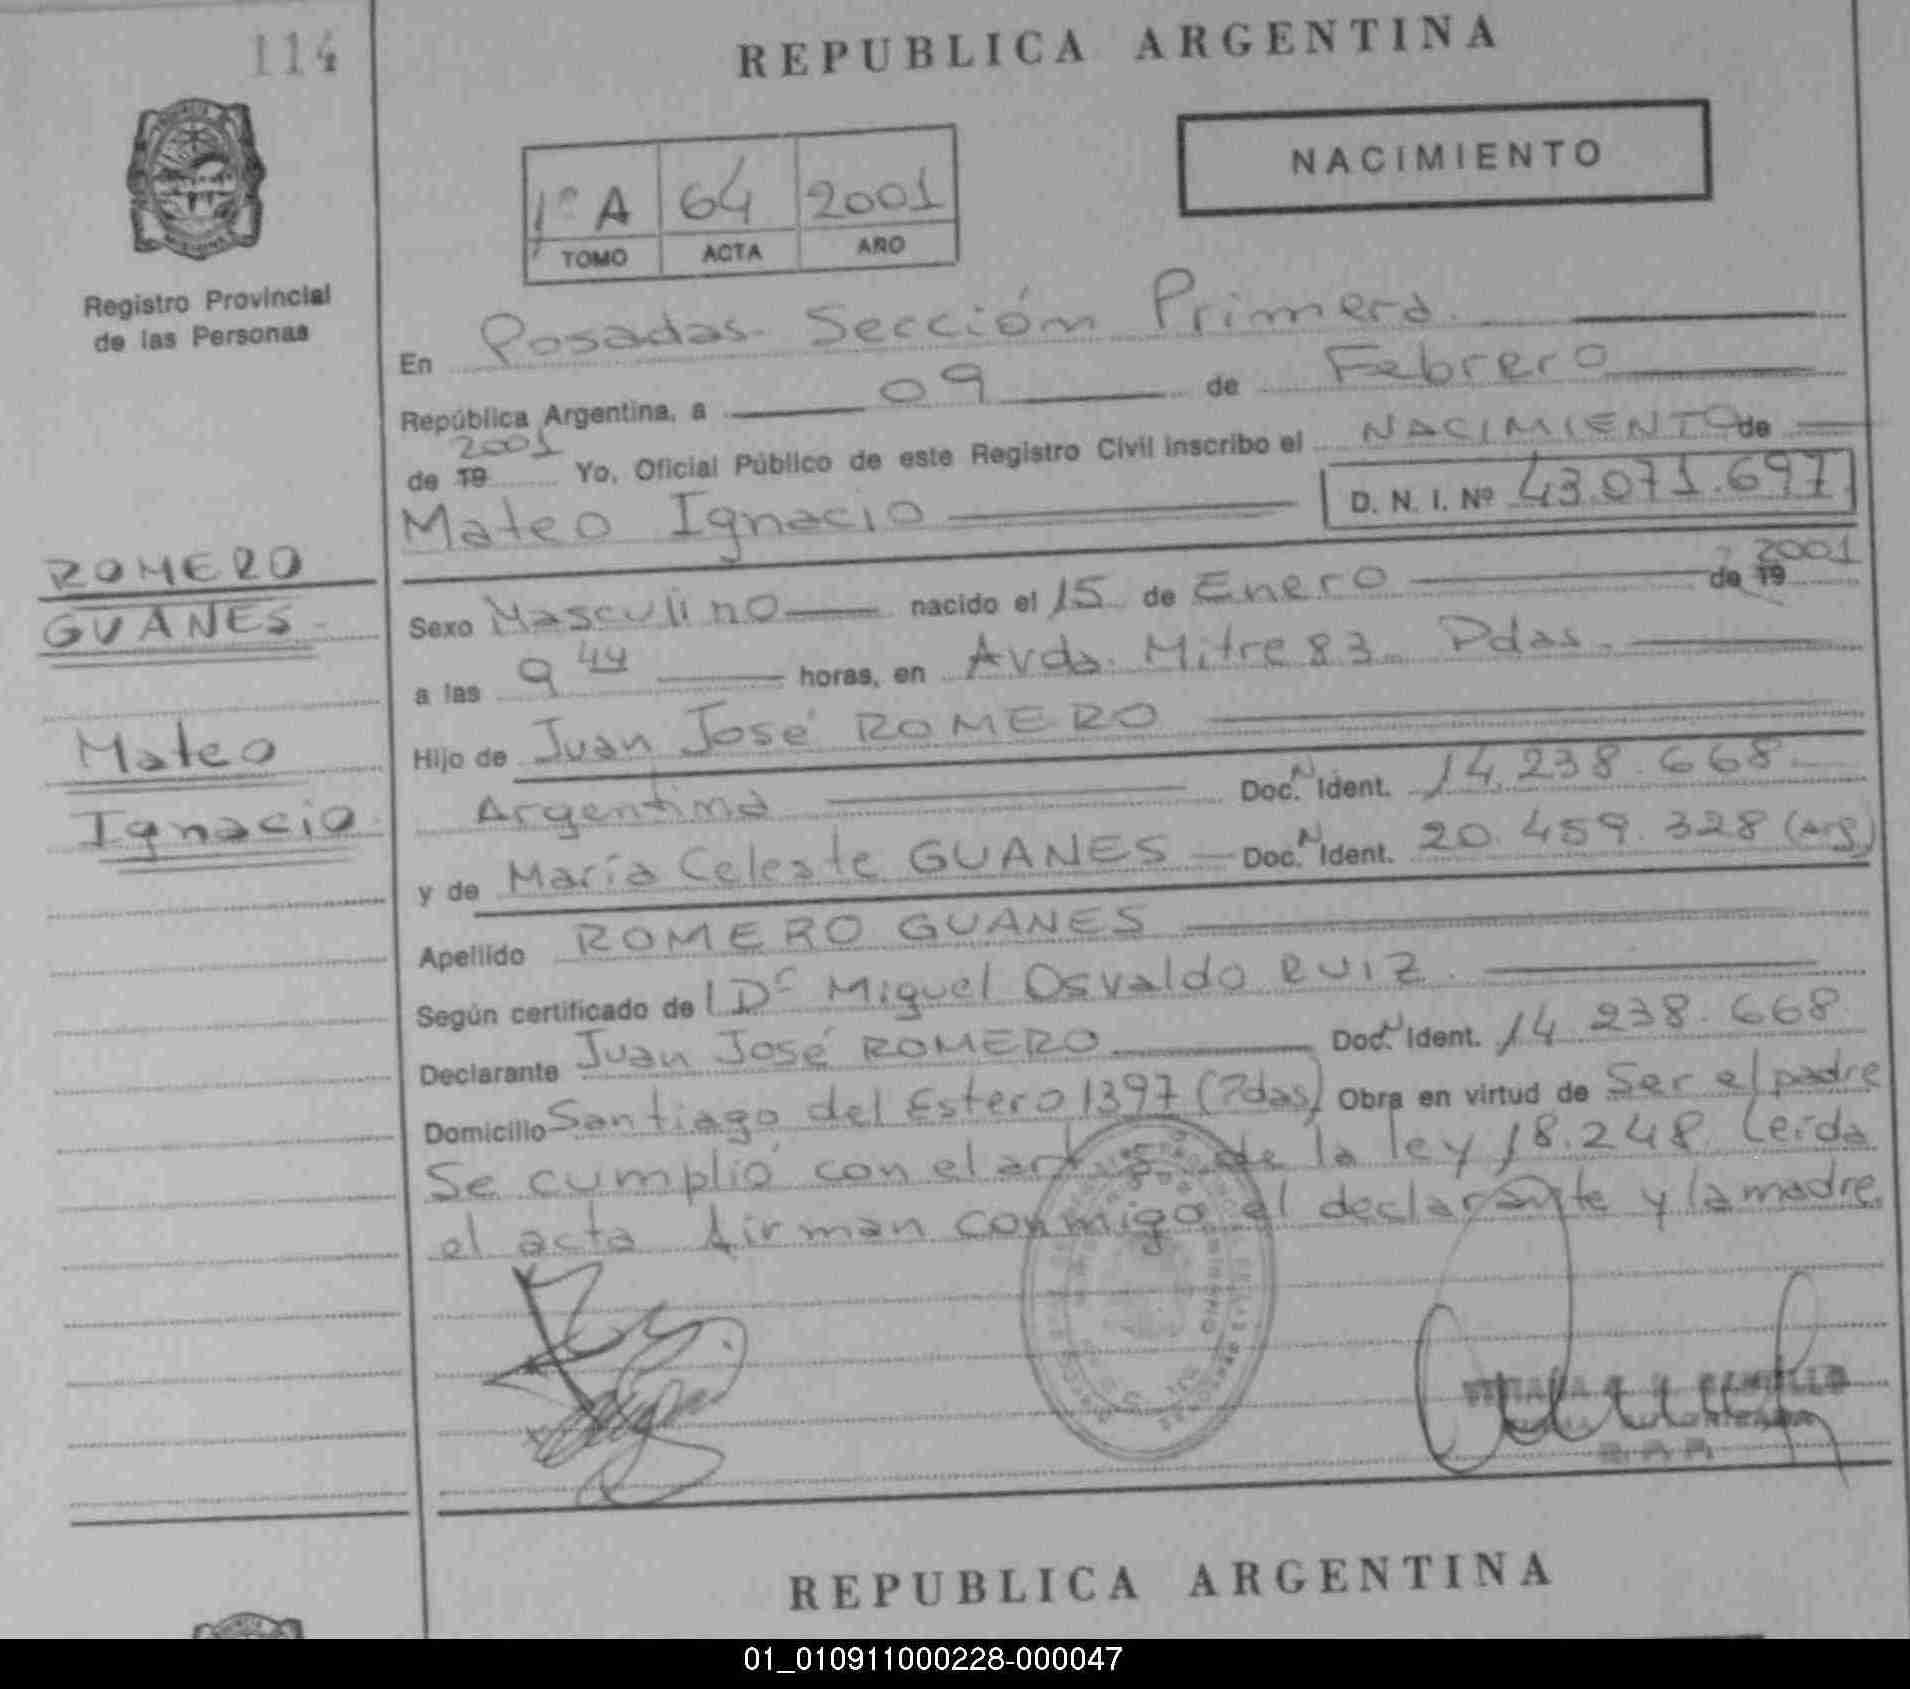 114
REPUBLICA ARGENTINA
NACIMIENTO
1º A 64 2001
TOMO ACTA AÑO
Registro Provincial
de las Personas
En Posadas Sección Primera
República Argentina, a 09 de Febrero
de 19 2001 Yo, Oficial Público de este Registro Civil inscribo el NACIMIENTO de
Mateo Ignacio D. N. I. Nº 43.071.697
ROMERO
GUANES
Mateo
Ignacio
Sexo Masculino nacido el 15 de Enero de 19 2001
a las 9 44 horas, en Avda. Mitre 83 Pdas.
Hijo de Juan José ROMERO
Argentina Doc. N Ident. 14.238.668
y de María Celeste GUANES Doc. N Ident. 20.459.328 (arg)
Apellido ROMERO GUANES
Según certificado de Dr Miguel Osvaldo RUIZ
Declarante Juan José ROMERO Doc. N Ident. 14.238.668
Domicilio Santiago del Estero 1397 (Pdas) Obra en virtud de Ser el padre
Se cumplió con el art. 5 de la ley 18.248 Leída
el acta firman conmigo el declarante y la madre.
REPUBLICA ARGENTINA
01_010911000228-000047